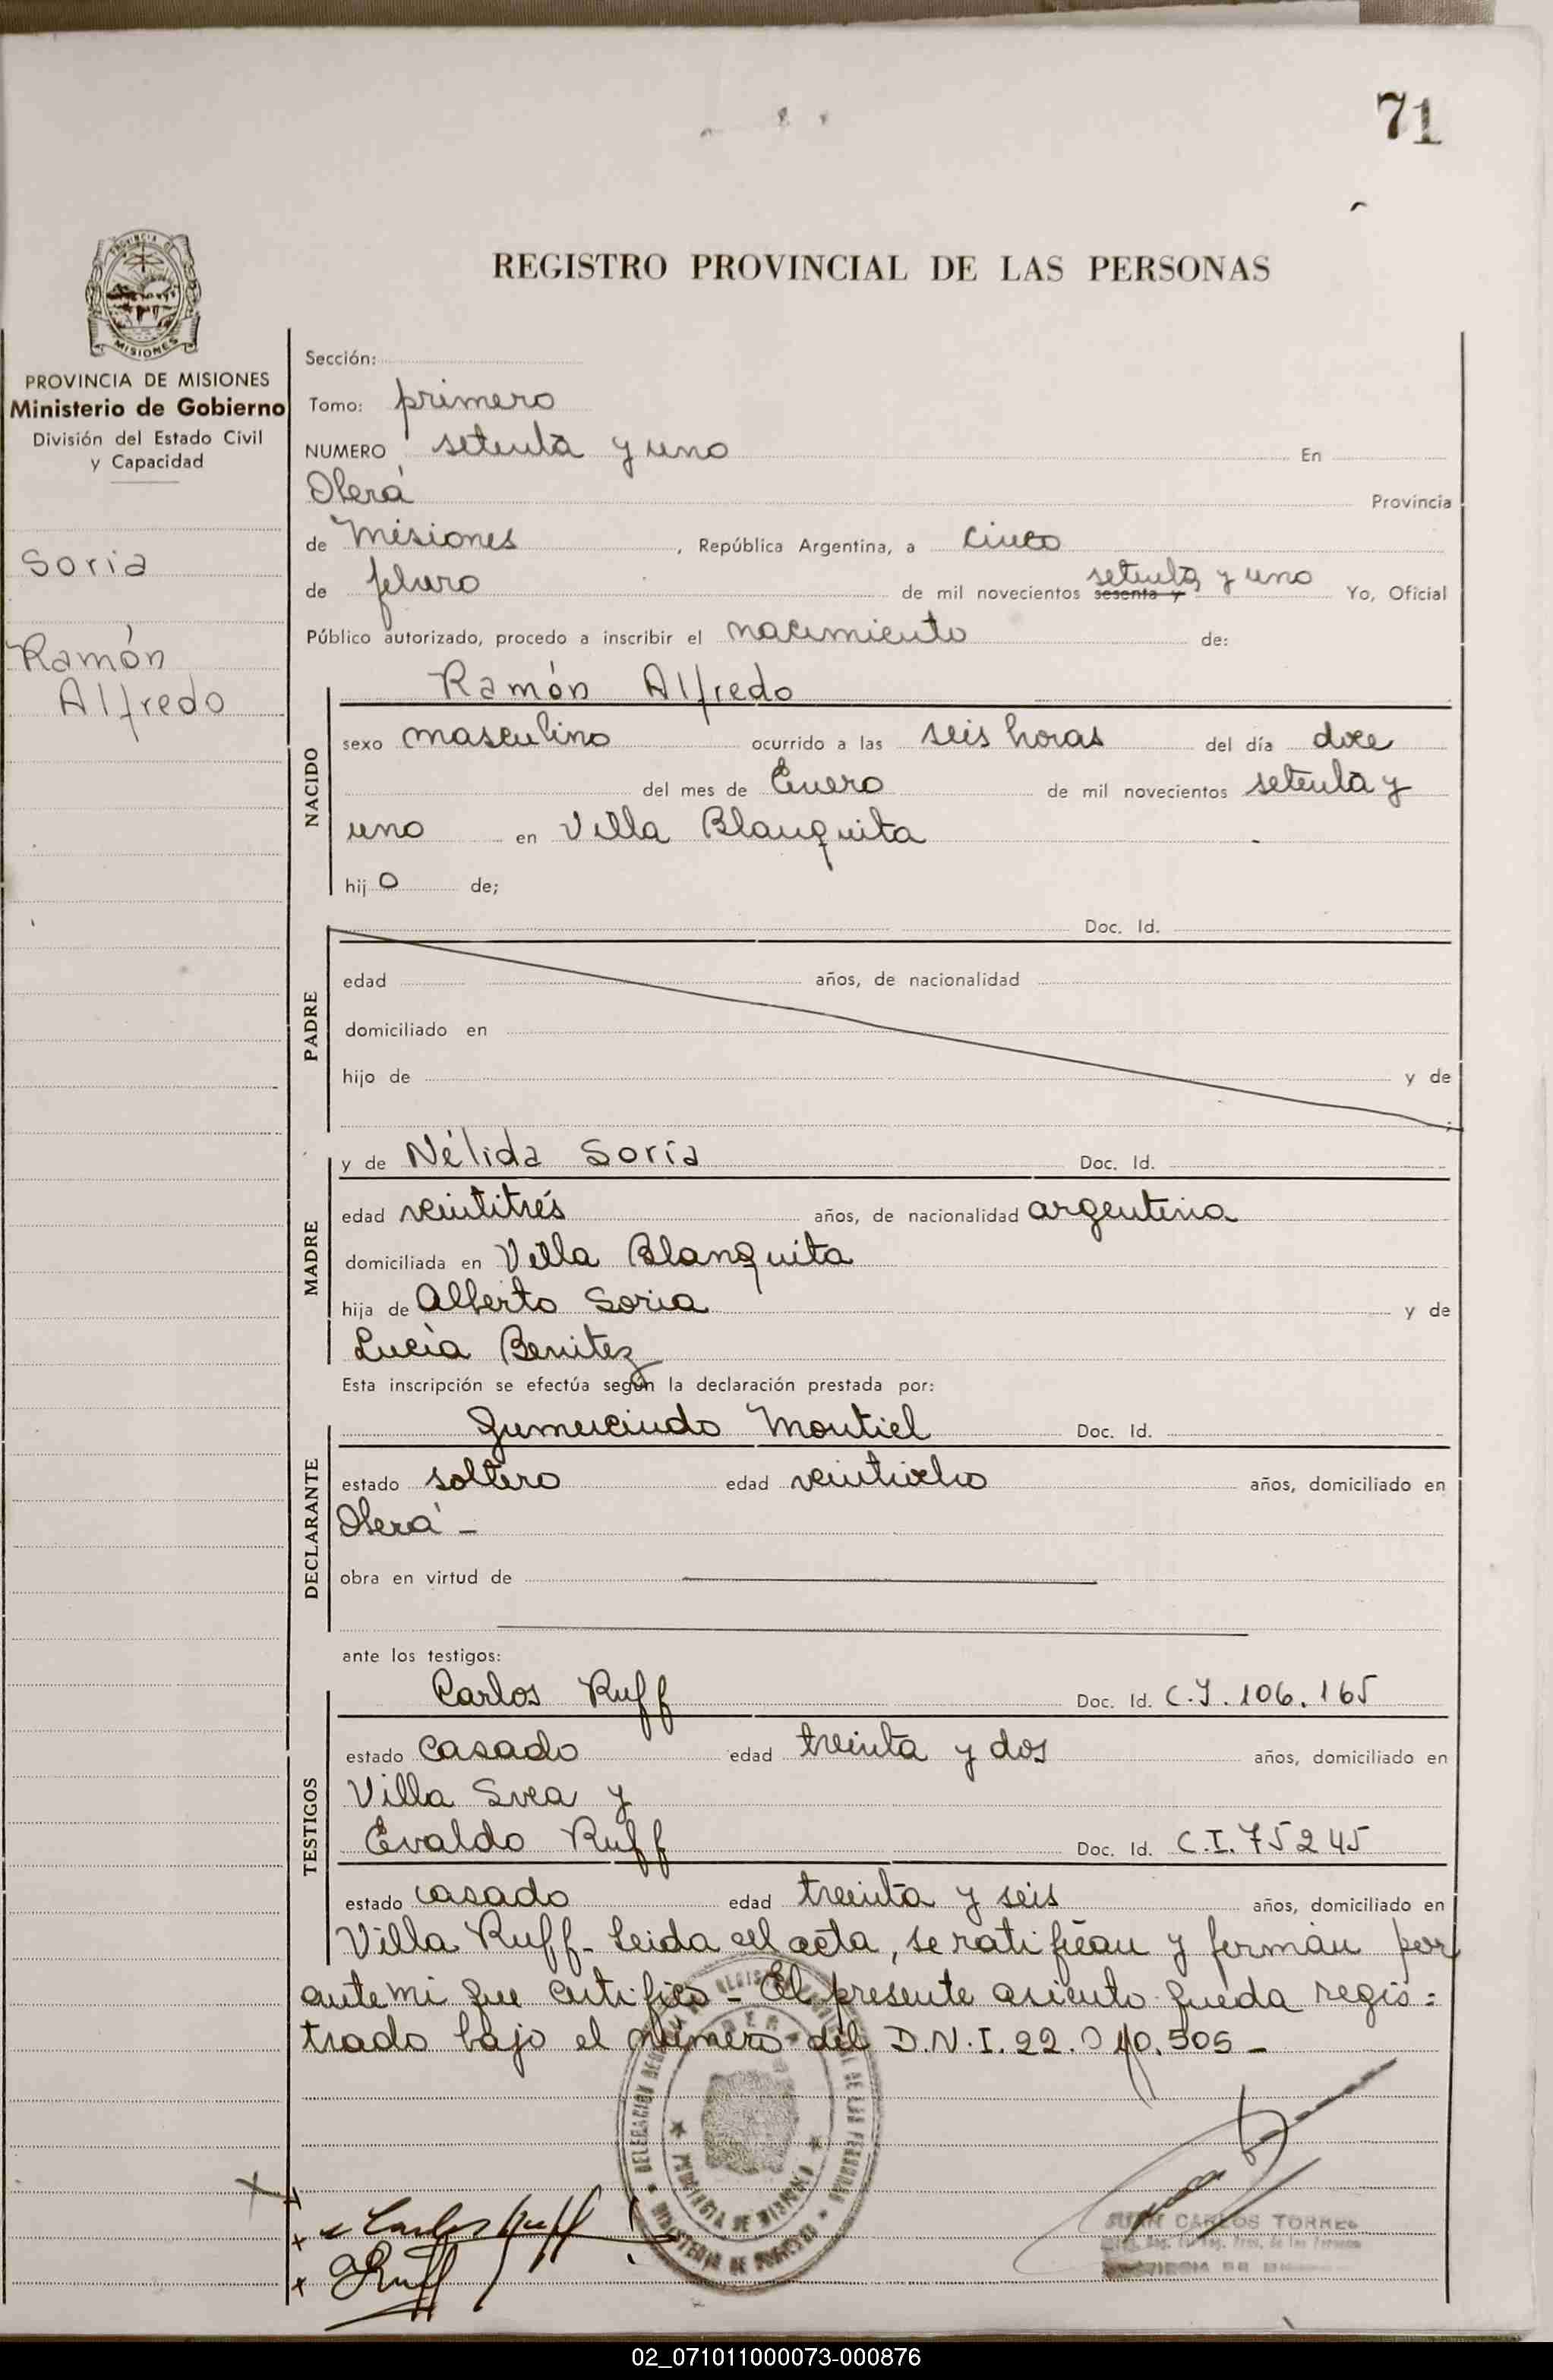 71
REGISTRO PROVINCIAL DE LAS PERSONAS
PROVINCIA DE
MISIONES
PROVINCIA DE MISIONES
Ministerio de Gobierno
División del Estado Civil
y Capacidad
Soria
Ramón
Alfredo
Sección:
Tomo: primero
NUMERO setenta y uno En
Oberá Provincia
de Misiones, República Argentina, a cinco
de febrero de mil novecientos sesenta y setenta y uno Yo, Oficial
Público autorizado, procedo a inscribir el nacimiento de:
Ramón Alfredo
NACIDO
sexo masculino ocurrido a las seis horas del día doce
del mes de Enero de mil novecientos setenta y
uno en Villa Blanquita
hijo de;
PADRE
Doc. Id.
edad años, de nacionalidad
domiciliado en
hijo de y de
;
MADRE
y de Nélida Soria Doc. Id.
edad veintitrés años, de nacionalidad argentina
domiciliada en Villa Blanquita
hija de Alberto Soria y de
Lucía Benitez
Esta inscripción se efectúa según la declaración prestada por:
DECLARANTE
Gumercindo Montiel Doc. Id.
estado soltero edad veintiocho años, domiciliado en
Oberá -
obra en virtud de
ante los testigos:
TESTIGOS
Carlos Ruff Doc. Id. C.I. 106.165
estado casado edad treinta y dos años, domiciliado en
Villa Svea y
Evaldo Ruff Doc. Id. C.I. 75245
estado casado edad treinta y seis años, domiciliado en
Villa Ruff - Leida el acta, se ratifican y forman por
ante mi que certifico - El presente asiento queda regis=
trado bajo el número del D.N.I. 22.040.505 -
PROVINCIA DE MISIONES
MINISTERIO DE GOBIERNO
Carlos Ruff
Ruff
JUAN CARLOS TORRES
02_071011000073-000876